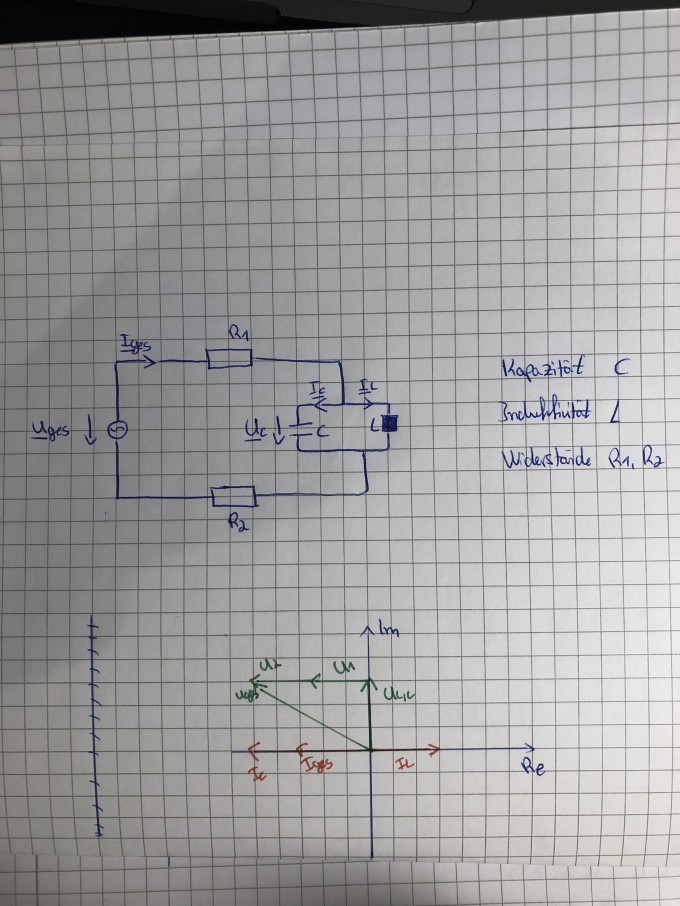 R1
Iges
Ic IL
Uges Uc C L
R2
Kapazität C
Induktivität L
Widerstände R1, R2
Im
U2 U1
Uges UC,L
Ic Iges IL
Re